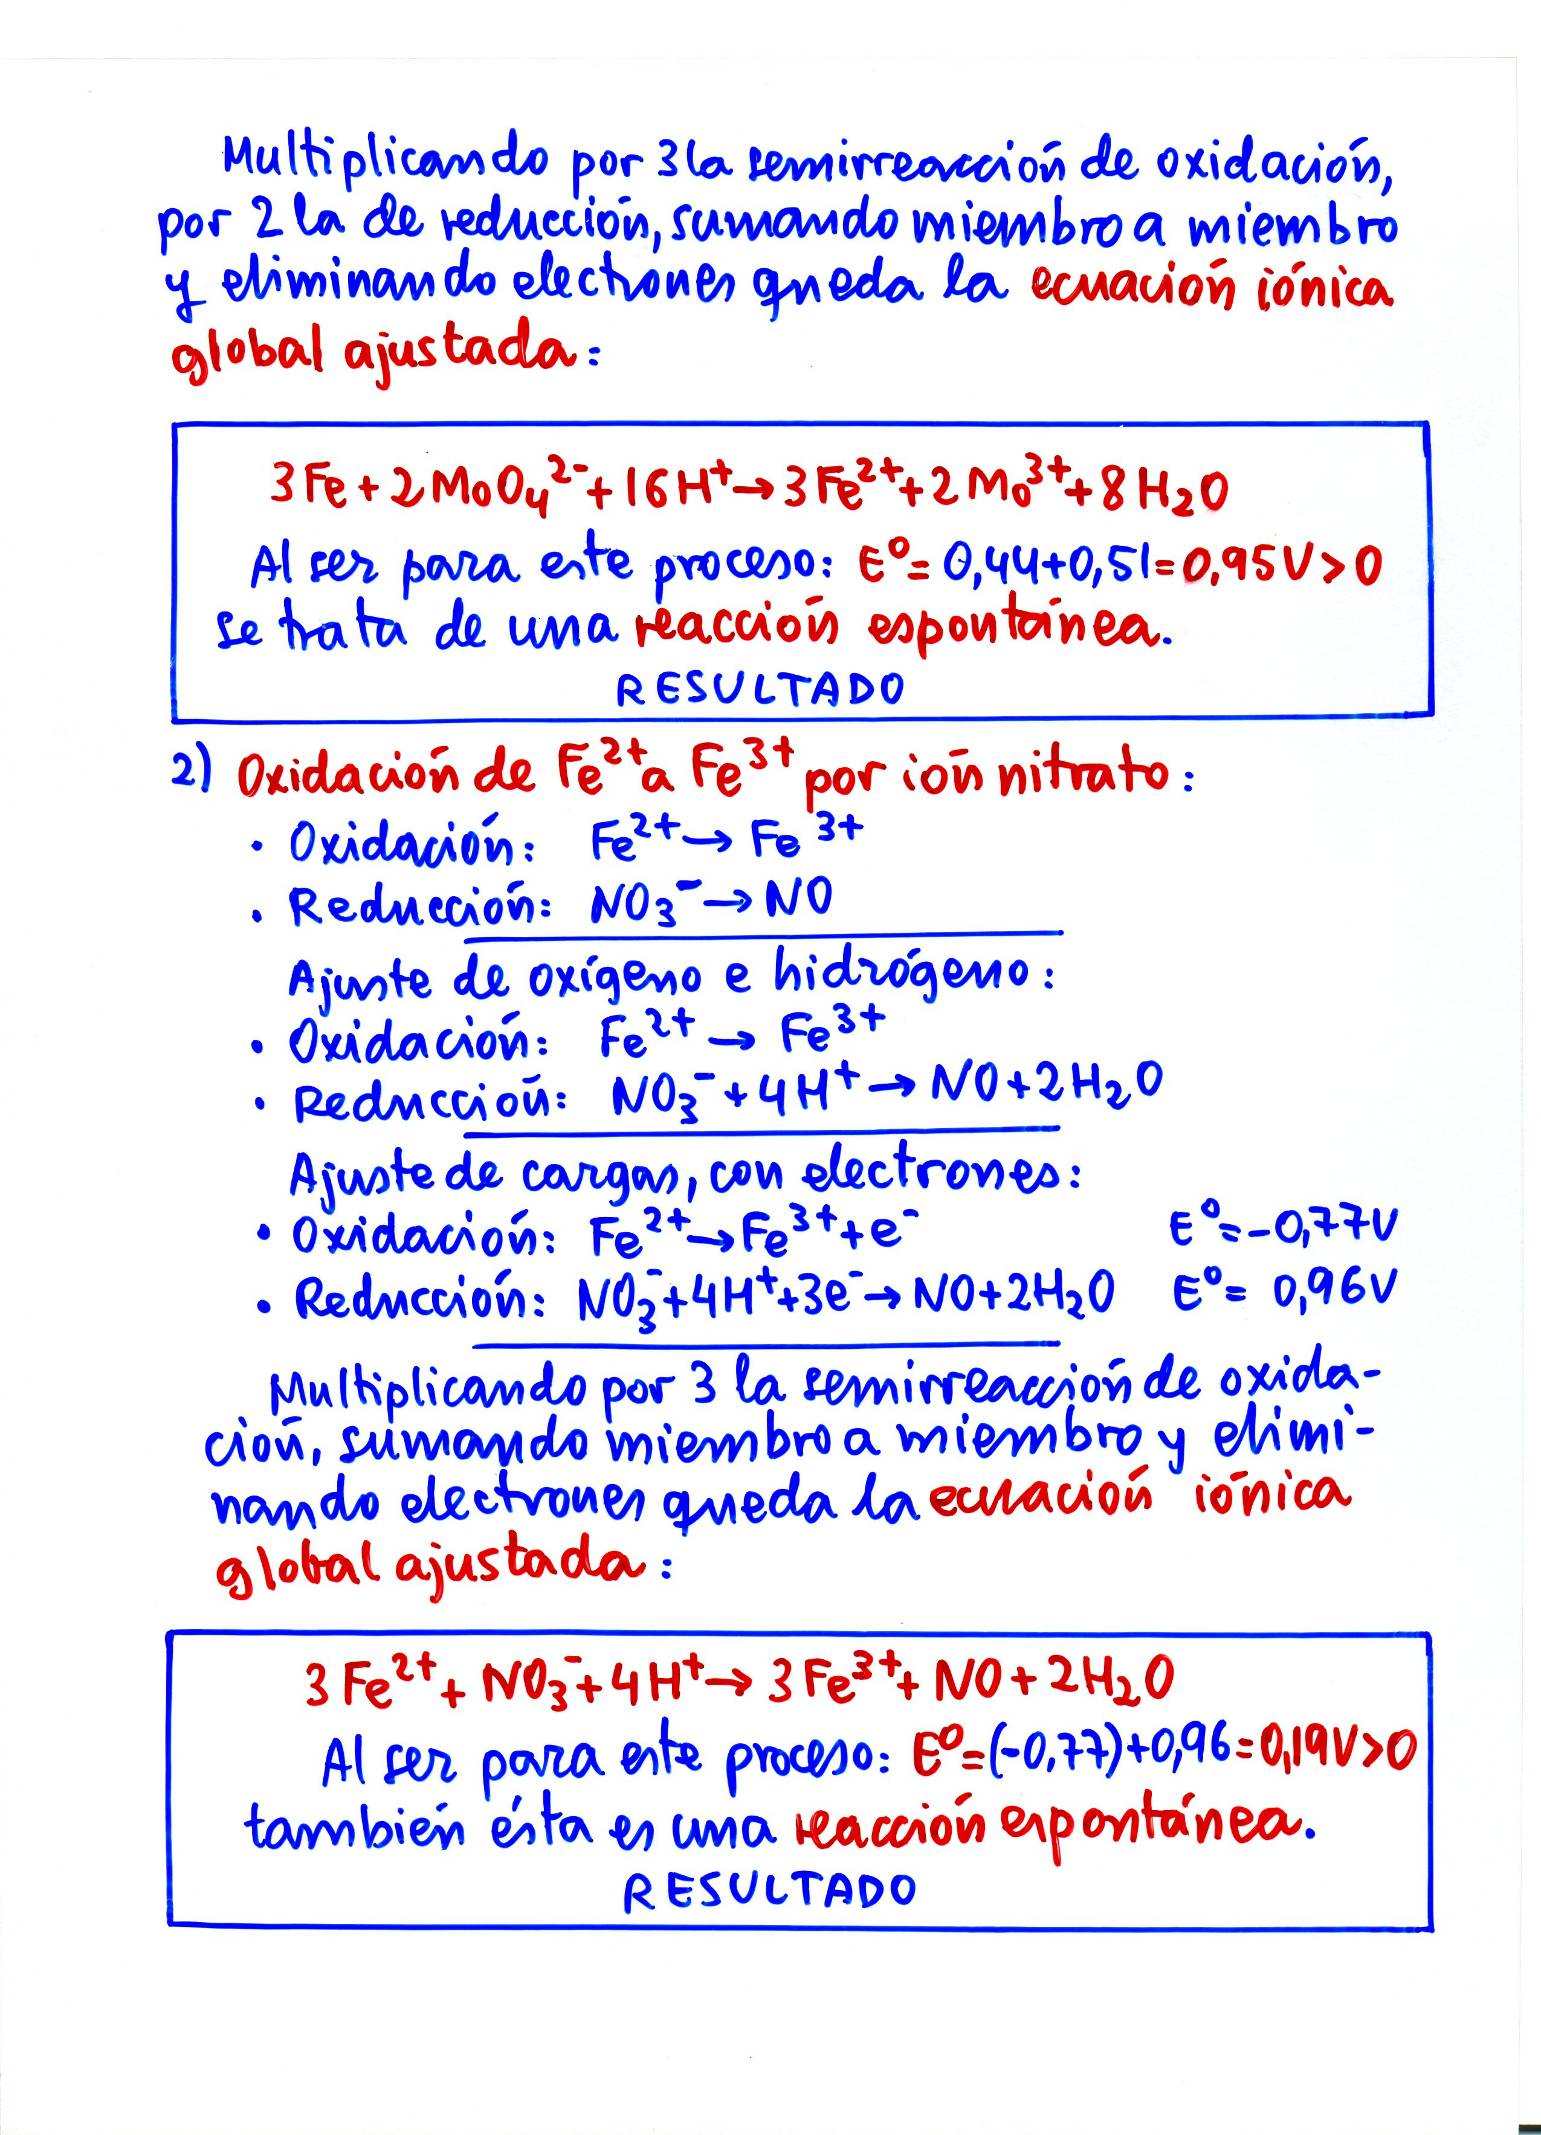 Multiplicando por 3 la semirreacción de oxidación,
por 2 la de reducción, sumando miembro a miembro
y eliminando electrones queda la ecuación iónica
global ajustada:
3Fe + 2MoO₄²⁻ + 16H⁺ → 3Fe²⁺ + 2Mo³⁺ + 8H₂O
Al ser para este proceso: E⁰ = 0,44+0,51 = 0,95V > 0
se trata de una reacción espontánea.
RESULTADO
2) Oxidación de Fe²⁺ a Fe³⁺ por ión nitrato:
· Oxidación: Fe²⁺ → Fe³⁺
· Reducción: NO₃⁻ → NO
Ajuste de oxígeno e hidrógeno:
· Oxidación: Fe²⁺ → Fe³⁺
· Reducción: NO₃⁻ + 4H⁺ → NO + 2H₂O
Ajuste de cargas, con electrones:
· Oxidación: Fe²⁺ → Fe³⁺ + e⁻ E⁰ = -0,77V
· Reducción: NO₃⁻ + 4H⁺ + 3e⁻ → NO + 2H₂O E⁰ = 0,96V
Multiplicando por 3 la semirreacción de oxida-
ción, sumando miembro a miembro y elimi-
nando electrones queda la ecuación iónica
global ajustada:
3Fe²⁺ + NO₃⁻ + 4H⁺ → 3Fe³⁺ + NO + 2H₂O
Al ser para este proceso: E⁰ = (-0,77)+0,96 = 0,19V > 0
también ésta es una reacción espontánea.
RESULTADO